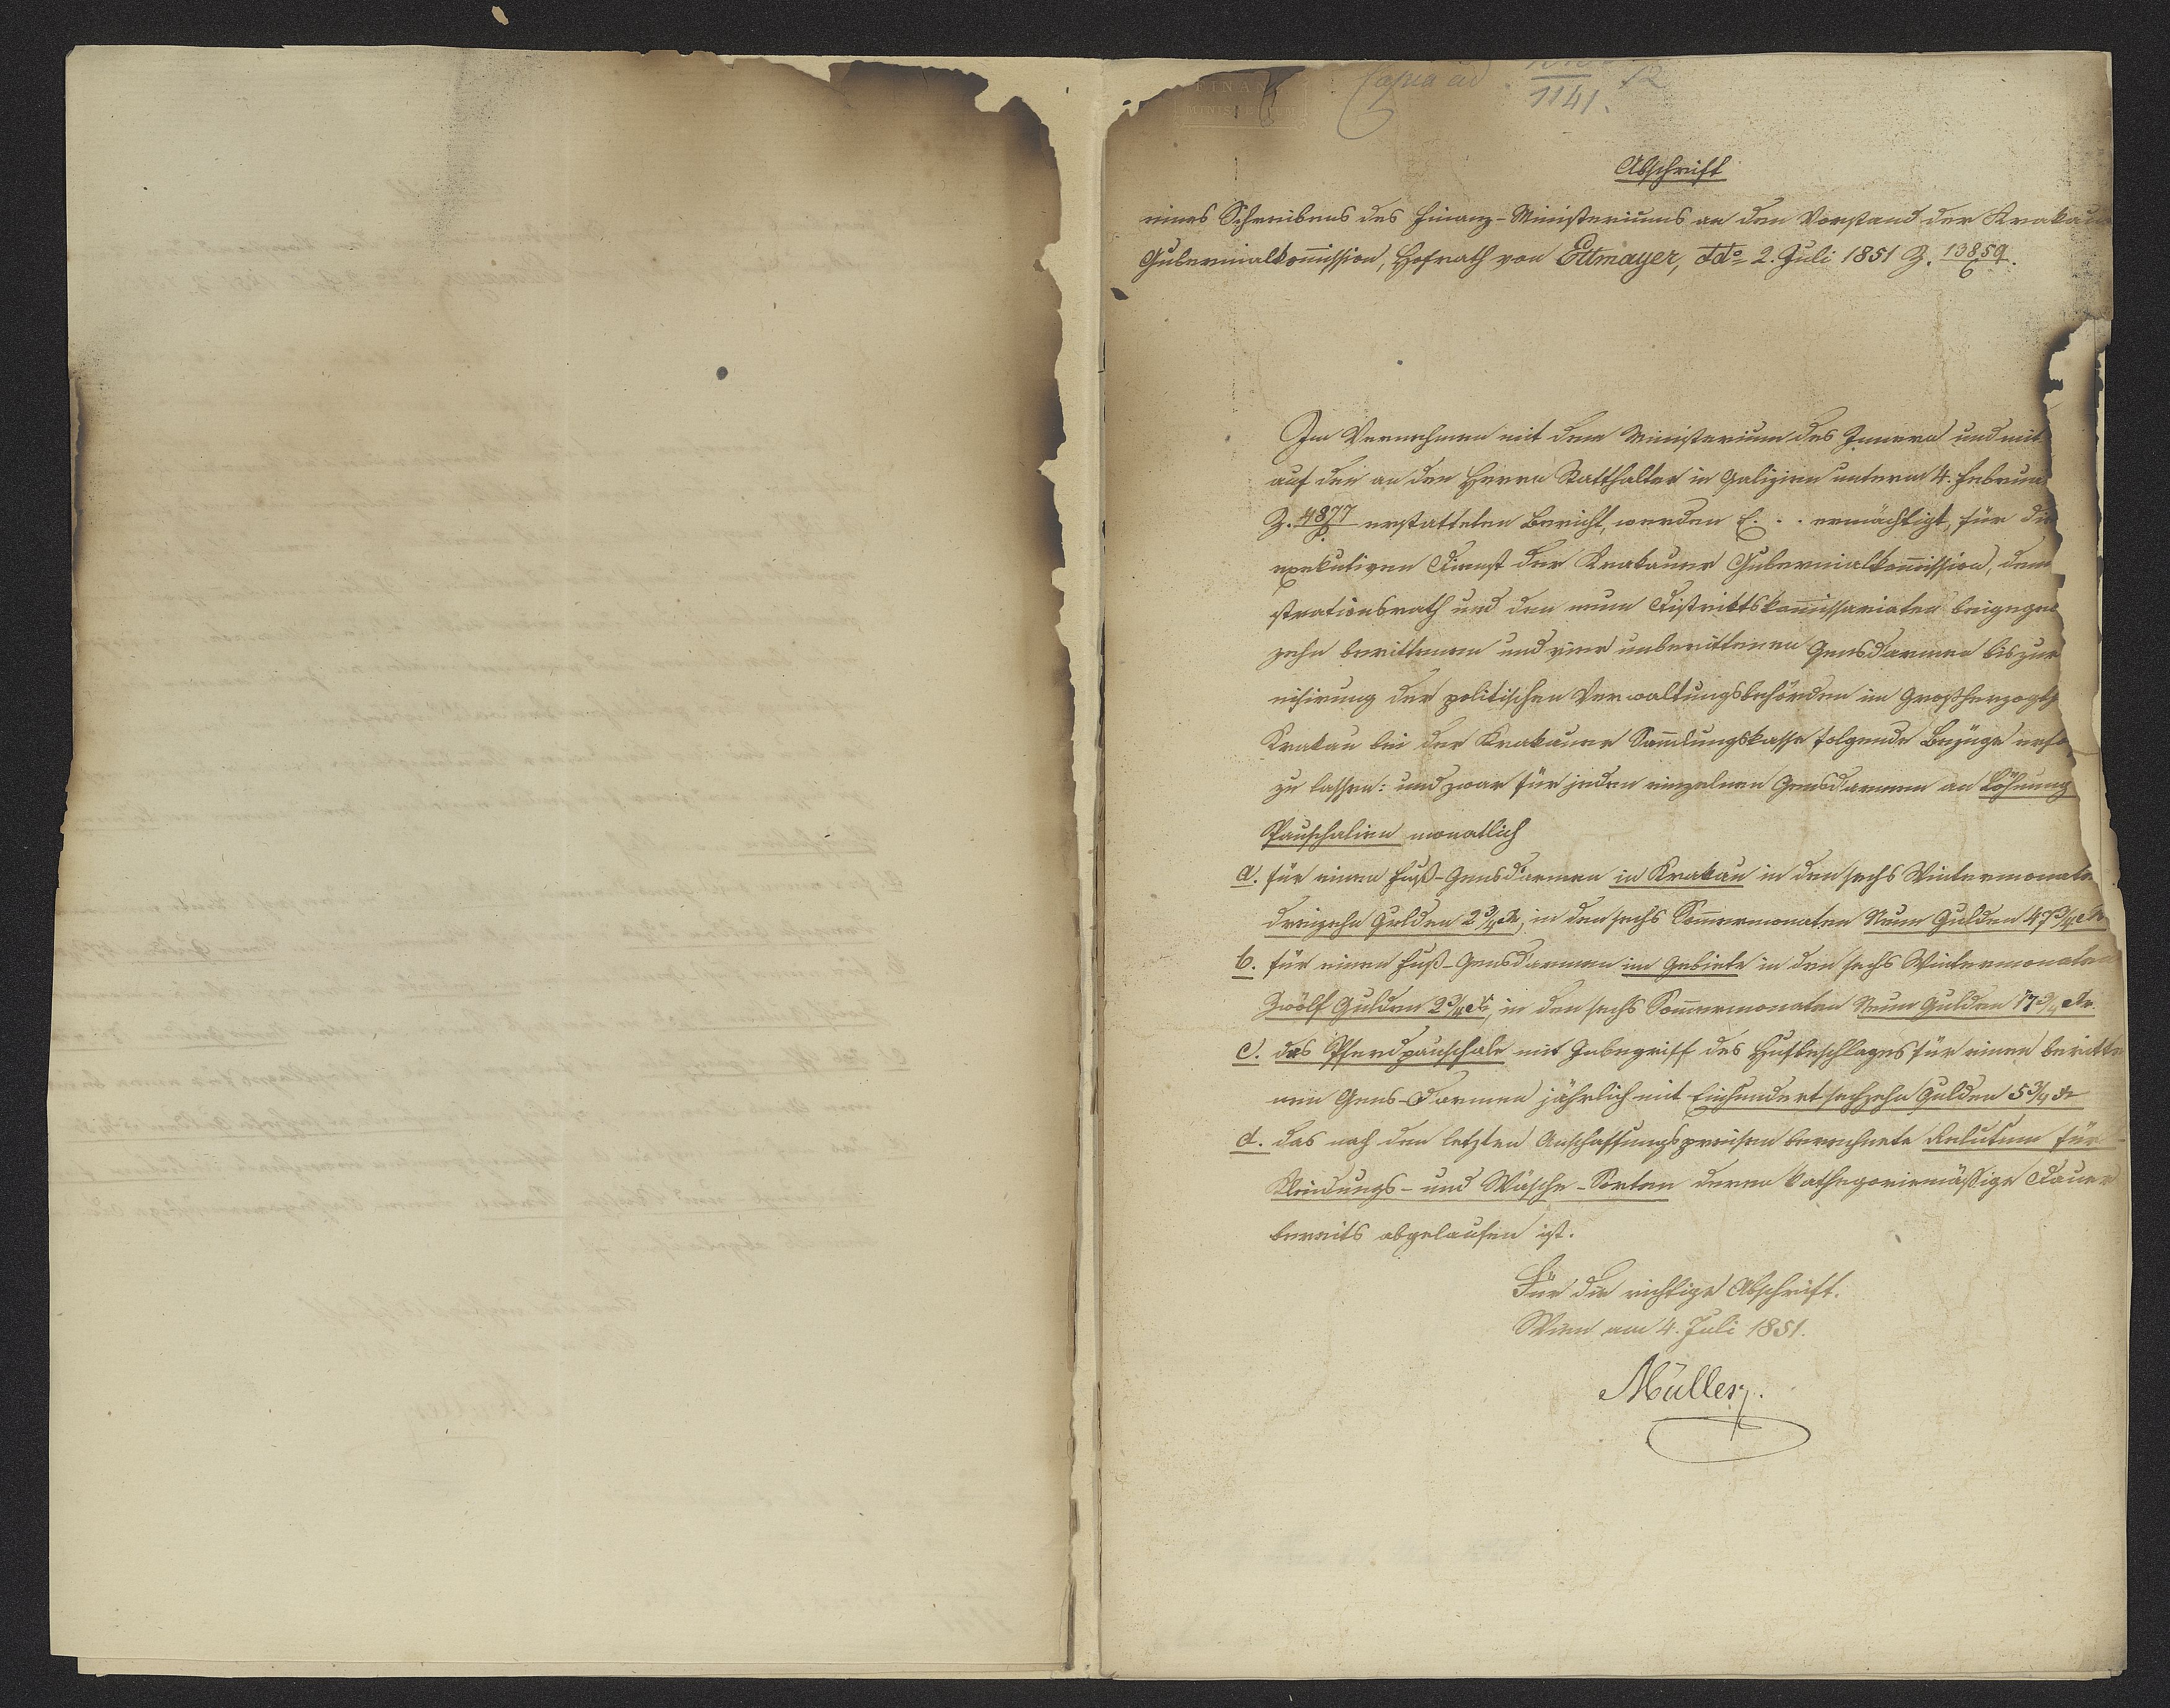 FINANZ
MINISTERIUM
Copia ad
1141.
Abschrift
eines Schreibens des Finanz-Ministeriums an den Vorstand der Krakau
Gubernialkom̄ission, Hofrath von Ettmayer, ddo 2. Juli 1851 Z. 13859/6.
Im Vernehmen mit dem Ministerium des Innern und mit
auf den an den Herrn Statthalter in Galizien unterm 4. Februa
Z. 4877 erstatteten Bericht, werden E. . . ermächtigt, für die
exekutiven Dienst der Krakauer Gubernialkom̄ission, dem
strationsrath und den neun Distriktskom̄issariaten beigege
zehn berittenen und vier unberittenen Gensd'armen bis zur
nisirung der politischen Verwaltungsbehörden im Großherzogth
Krakau bei der Krakauer Sam̄lungskasse folgende Bezüge erfo
zu lassen: und zwar für jeden einzelnen Gensd'armen an Löhnung
Pauschalien monatlich
a. für einen Fuß-Gensd'armen in Krakau in den sechs Wintermonate
dreizehn Gulden 2 3/4 xr, in den sechs Som̄ermonaten Neun Gulden 47 3/4 xr
b. für einen Fuß-Gensd'armen im Gebiete in den sechs Wintermonaten
Zwölf Gulden 2 3/4 xr, in den sechs Som̄ermonaten Neun Gulden 17 3/4 xr.
c. das Pferdpauschale mit Inbegriff des Hufbeschlages für einen beritte
nen Gens-Darmen jährlich mit Einhundert sechzehn Gulden 5 3/4 xr
d. das nach den letzten Anschaffungspreisen berechnete Relutum für
Kleidungs- und Wäsche-Sorten deren kathegoriemäßige Dauer
bereits abgelaufen ist.
Für die richtige Abschrift.
Wien am 4. Juli 1851.
Müller